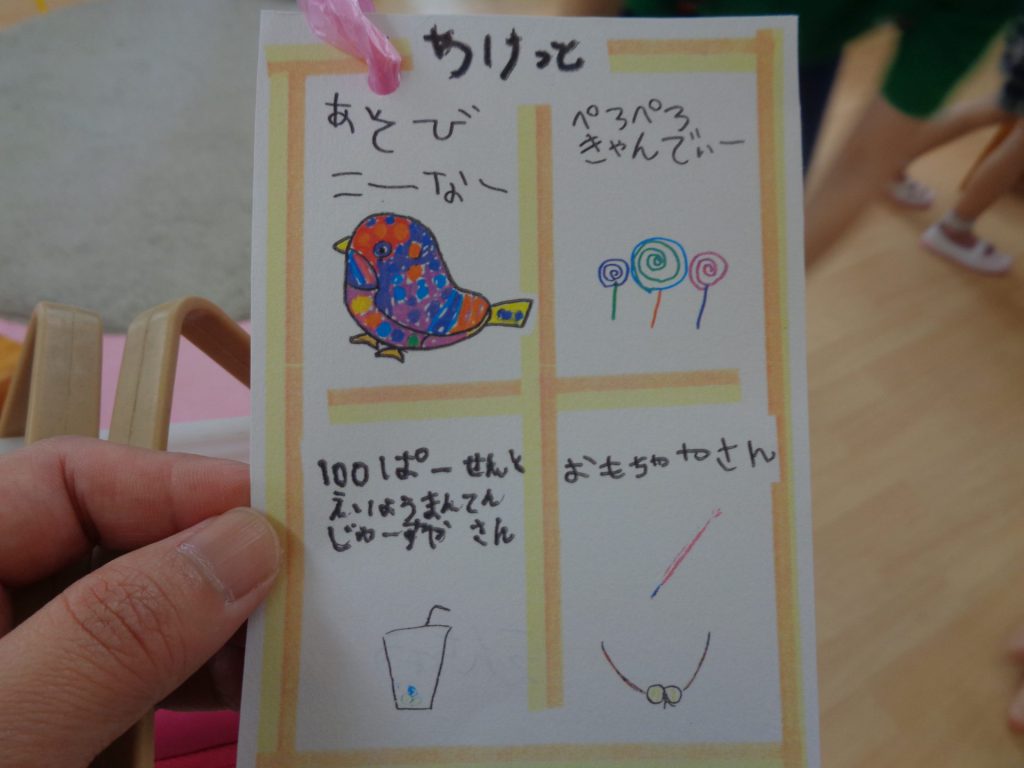 ちけっと
あそび
こーなー
ぺろぺろ
きゃんでぃー
100ぱーせんと
えいようまんてん
じゅーすや さん
おもちゃやさん